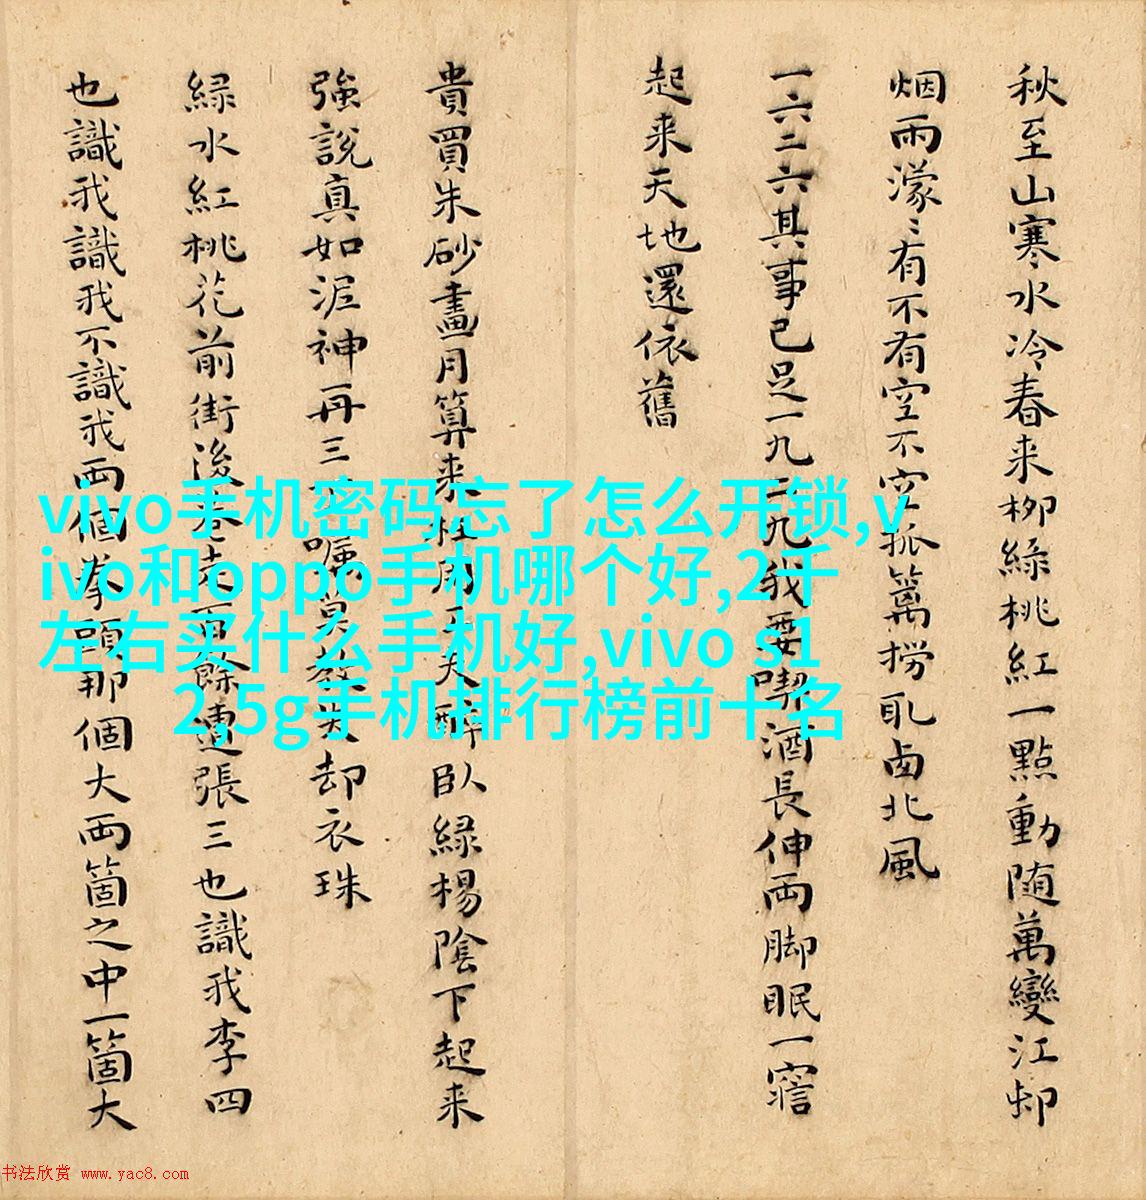 秋至山寒水冷春来柳緑桃紅一點動随萬變江邨
烟雨濛〻有不有空不空孤篱撈取西北風
一六二六其事已足一九二九我要喫酒長伸両脚眠一寤
起来天地還依舊
貴買朱砂畫月算来枉用工夫醉臥緑楊陰下起来
強説真如泥神再三嘱莫教失却衣珠
緑水紅桃花前街後巷走百餘遭張三也識我李四
也識我識我不識我両個拳頭那個大両箇之中一箇大
vivo手机密码忘了怎么开锁,v
ivo和oppo手机哪个好,2千
左右买什么手机好,vivo s1
2,5g手机排行榜前十名
书法欣赏 www.yac8.com